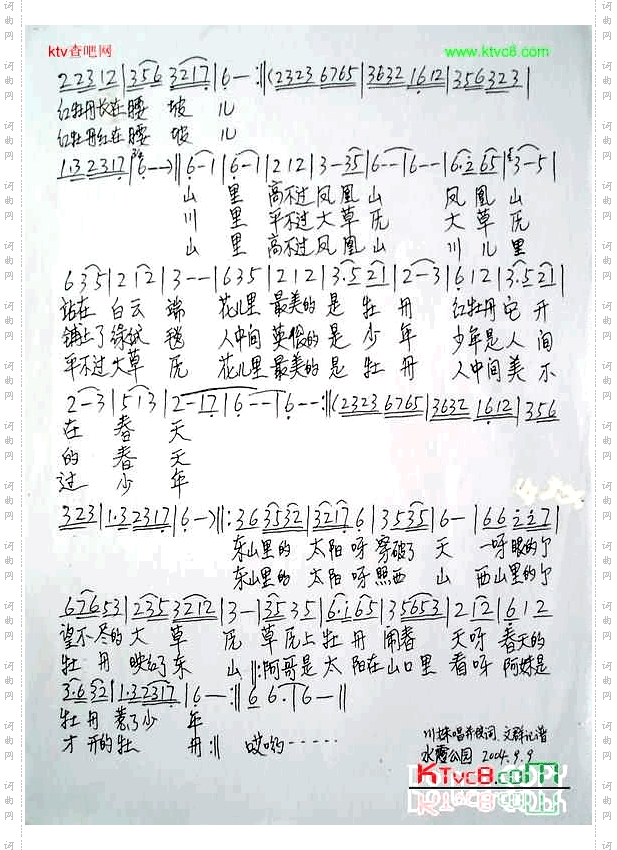 ktv查吧网 www.ktvc8.com
2 2 3 1 2 | 3 5 6 3 2 1 7 | 6 — :‖ (2 3 2 3 6 7 6 5 | 3 6 3 2 1 6 1 2 | 3 5 6 3 2 3 |
红牡丹长在腰 坡 儿
红牡丹红在腰 坡 儿
1· 3 2 3 1 7 | 6 — →) ‖ 6 — 1 | 6 — 1 | 2 1 2 | 3 — 3 5 | 6 — — | 6 — — | 6· 2 6 5 | 3 — 5 |
山 里 高不过凤凰山 凤凰山
川 里 平不过大草原 大草原
山 里 高不过凤凰山 川儿里
6 3 5 | 2 1 2 | 3 — — | 6 3 5 | 2 1 2 | 3· 5 2 1 | 2 — 3 | 6 1 2 | 3· 5 2 1 |
站在 白云 端 花儿里 最美的 是 牡 丹 红牡丹它开
铺上了绿绒 毯 人中间 英俊的是 少 年 少年是人间
平不过大草 原 花儿里 最美的 是 牡 丹 人中间美不
2 — 3 | 5 1 3 | 2 — 1 7 | 6 — — | 6 — — :‖ (2 3 2 3 6 7 6 5 | 3 6 3 2 1 6 1 2 | 3 5 6
在 春 天
的 春 天
过 少 年
3 2 3 | 1· 3 2 3 1 7 | 6 — →) ‖: 3 6 3 5 3 2 | 3 2 1 7 6 | 3 5 3 5 | 6 — | 6 6 i i 2 7 |
东山里的 太阳呀 穿破了 天 一呀眼的个
东山里的 太阳呀 照西 山 西山里的个
6 7 6 5 3 | 2 3 5 3 2 1 2 | 3 — | 3 5 3 5 | 6· i 6 5 | 3 5 6 5 3 | 2 1 2 | 6 1 2
望不尽的 大 草 原 草原上 牡 丹 闹春 天呀 春天的
牡 丹 映红了东 山 ‖: 阿哥是 太 阳在山口里 看呀 阿妹是
3· 6 3 2 | 1· 3 2 3 1 7 | 6 — :‖ 6 6· | 6 — ‖
牡 丹 惹了少 年
才 开的牡 丹 :‖ 哎哟……
水霞公园 2004. 9. 9
KTvc8.COPY
词曲网